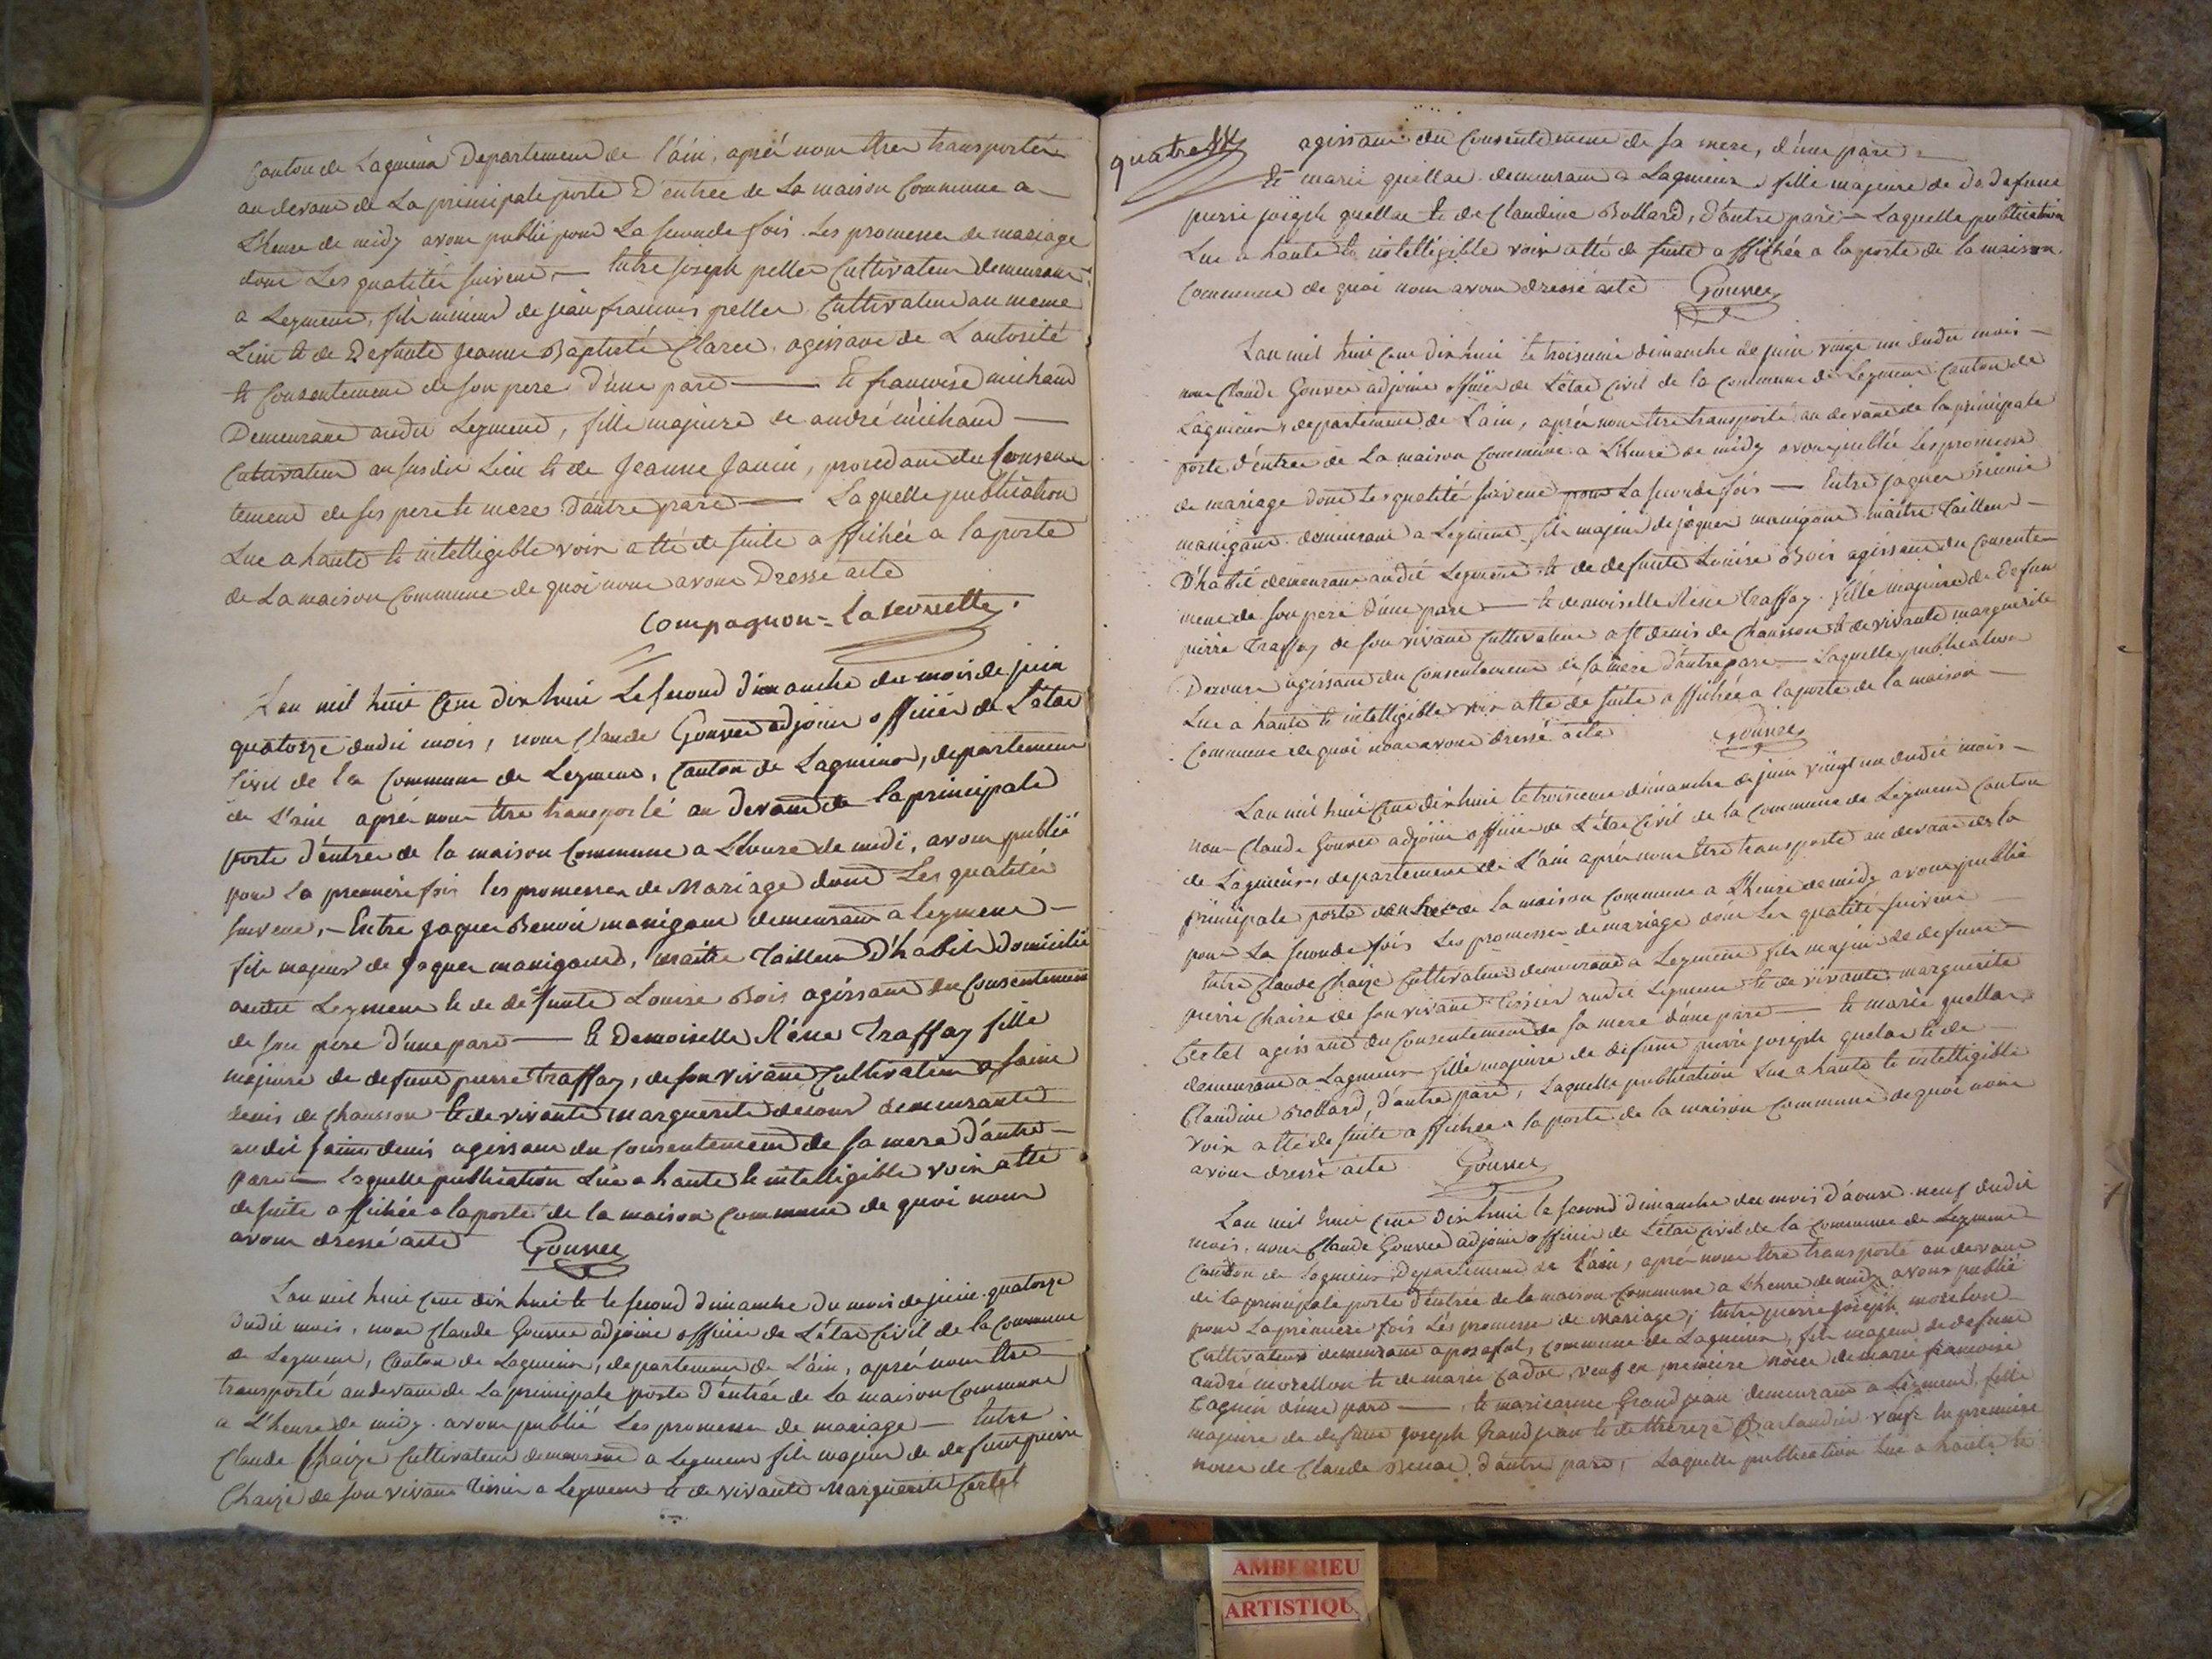 Canton de Lagnieu Departement de l'ain, après nous être transporté
au devant de La principale porte D'entrée de La maison Commune a
L'heure de midy avons publié pour La seconde fois Les promesses de mariage
dont Les qualités suivent, — Entre joseph pellet Cultivateur demeurant
a Leyment, fils mineur de jean francois pellet Cultivateur au meme
Lieu et de Defunte Jeanne Baptiste Claret agissant de L'autorité
et Consentement de son pere d'une part — Et francoise michaud
Demeurant audit Leyment, fille majeure de andré michaud —
Cultivateur au susdit Lieu et de Jeanne Janin, procedant du Consen
tement de ses pere et mere D'autre part — Laquelle publication
Lue a haute et intelligible voix a été de suite affichée a la porte
de La maison Commune de quoi nous avons Dressé acte
Compagnon-Laseonrette
L'an mil huit Cent dix huit Le second dimanche du mois de juin
quatorze dudit mois, nous Claude Gouvet adjoint officier de L'état
Civil de la Commune de Leyment, Canton de Lagnieu, departement
de L'ain après nous être transporté au devant de la principale
porte d'entrée de la maison Commune a L'heure de midi, avons publié
pour La premiere fois les promesses de Mariage dont Les qualités
suivent, — Entre jaques Benoit manigant demeurant a leyment —
fils majeur de jaques manigand, maitre Tailleur D'habits domicilié
audit Leyment et de defunte Louise Bois agissant du Consentement
de son pere d'une part — Et Demoiselle Réne Traffay fille
majeure de defunt pierre traffay, de son vivant Cultivateur a saint
denis de chausson et de vivante marguerite decour demeurante
audit saint denis agissant du Consentement de sa mere d'autre —
part — Laquelle publication Lue a haute et intelligible voix a été
de suite affichée a la porte de la maison commune de quoi nous
avons dressé acte Gouvet
L'an mil huit Cent dix huit et le second dimanche du mois de juin quatorze
dudit mois, nous Claude Gouvet adjoint officier de L'état Civil de la Commune
de Leyment, Canton de Lagnieu, departement de L'ain, après nous être
transporté au devant de La principale porte d'entrée de La maison Commune
a L'heure de midy avons publié Les promesses de mariage — Entre
Claude Chaize Cultivateur demeurant a Leyment fils majeur de defunt pierre
Chaize de son vivant tissier a Leyment et de vivante Marguerite Certel
quatre
agissant du Consentement de sa mere, d'une part —
Et marie guellat demeurant a Lagnieu fille majeure de defunt
pierre joseph guellat et de Claudine Bollard, d'autre part — Laquelle publication
Lue a haute et intelligible voix a été de suite affichée a la porte de la maison
Commune de quoi nous avons dressé acte Gouvet
L'an mil huit Cent dix huit le troisieme dimanche de juin vingt un dudit mois —
nous Claude Gouvet adjoint officier de L'état Civil de la Commune de Leyment Canton de
Lagnieu, departement de L'ain, après nous être transporté au devant de la principale
porte d'entrée de La maison Commune a L'heure de midy avons publié Les promesse
de mariage dont Les qualité suivent pour La seconde fois — Entre jaques Benoit
manigant demeurant a Leyment fils majeur de jaques manigant maitre Tailleur —
D'habit demeurant audit Leyment et de defunte Louise Bois agissant du Consente
ment de son pere d'une part — et demoiselle Réne Traffay fille majeure de defunt
pierre Traffay de son vivant Cultivateur a st denis de Chausson et de vivante marguerite
Decour agissant du Consentement de sa mere d'autre part — Laquelle publication
Lue a haute et intelligible voix a été de suite affichée a la porte de la maison —
Commune de quoi nous avons dressé acte Gouvet
L'an mil huit Cent dix huit le troisieme dimanche de juin vingt un dudit mois —
nous Claude Gouvet adjoint officier de L'état Civil de la Commune de Leyment Canton
de Lagnieu, departement de L'ain après nous être transporté au devant de la
principale porte d'entrée de la maison Commune a L'heure de midy avons publié
pour La seconde fois Les promesses de mariage dont Les qualité suivent
Entre Claude Chaize Cultivateur demeurant a Leyment fils majeur de defunt
pierre Chaize de son vivant tissier audit Leyment et de vivante marguerite
Certel agissant du Consentement de sa mere d'une part — et marie guellat
demeurant a Lagnieu fille majeure de defunt pierre joseph guelat et de
Claudine Bollard, d'autre part, Laquelle publication Lue a haute et intelligible
voix a été de suite affichée a la porte de la maison Commune de quoi nous
avons dressé acte Gouvet
L'an mil huit Cent Dix huit le second dimanche du mois d'aoust neuf dudit
mois, nous Claude Gouvet adjoint officier de L'état Civil de la Commune de Leyment
Canton de Lagnieu, Departement de L'ain, après nous être transporté au devant
de la principale porte d'entrée de la maison Commune a L'heure de midy avons publié
pour La premiere fois Les promesse de Mariage, Entre pierre joseph morellon
Cultivateur demeurant a posafol, Commune de Lagnieu, fils majeur de defunt
andré morellon et de marie Cadot, veuf en premiere noces de marie francoise
Cagnin d'une part — et marieanne Grandjean demeurant a Leyment, fille
majeure de defunt joseph Grandjean et de thereze Barlandin veuve en premiere
noces de Claude Benat d'autre part, Laquelle publication Lue a haute et
AMBERIEU
ARTISTIQU